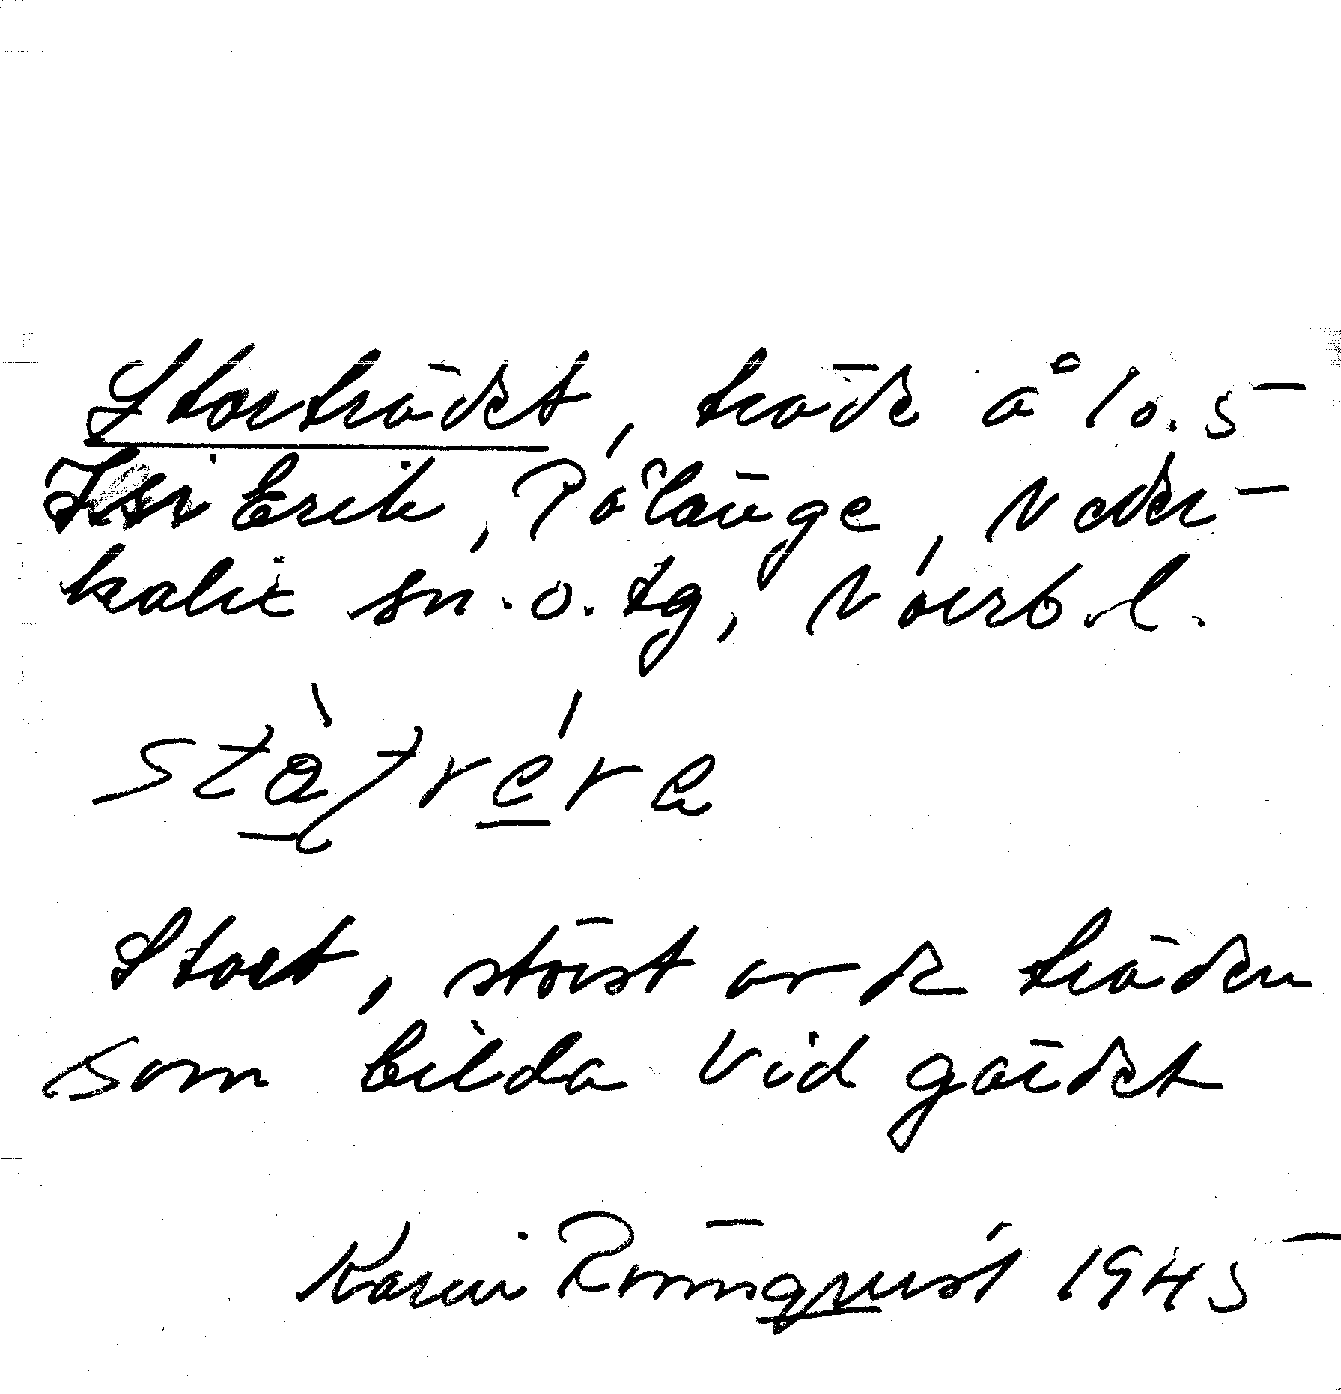 Storträdet, träde å 10.5
Erik, Pålänge, Neder-
kalix sn. o. tg, Norrb. l.
Stort, störst av de träden
som bilda vid gärdet
Karin Rönnqvist 1945